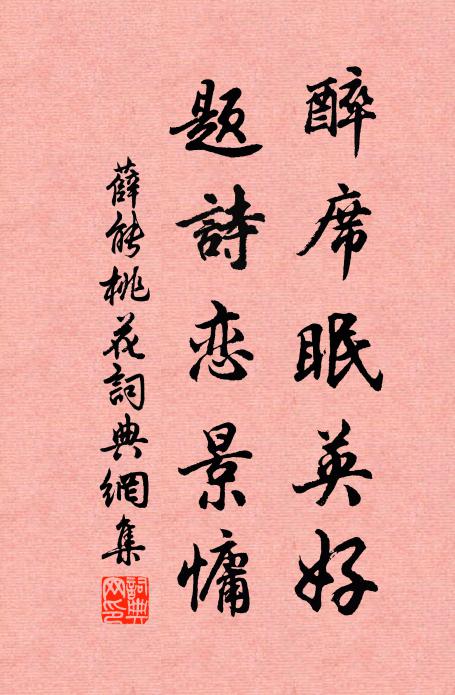 醉席眠英好
題詩恋景慵
薛能桃花詞典網集
詞典网印